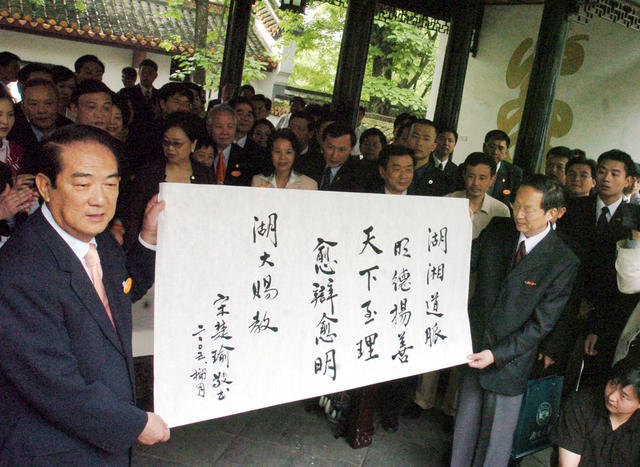 湖湘道脈
明德揚善
天下至理
愈辯愈明
湖大賜教
宋楚瑜敬書
二〇〇五.月